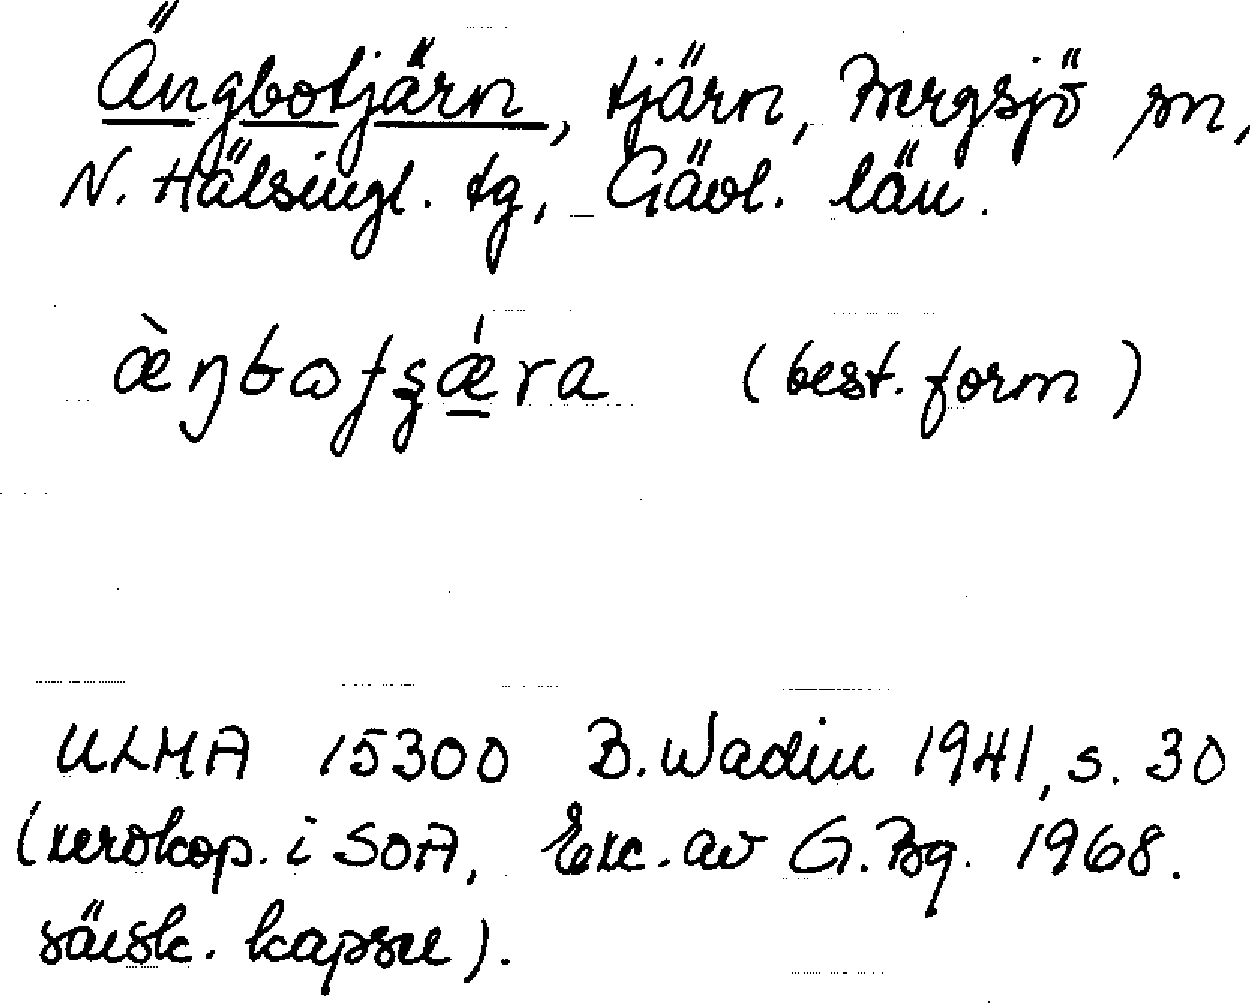 Ängbotjärn, tjärn, Bergsjö sn,
N. Hälsingl. tg, Gävl. län.
(best. form)
ULMA 15300 B. Wadin 1941, s. 30
(xerokop. i SOA, Exc. av G. Bg. 1968.
särsk. kapsel).